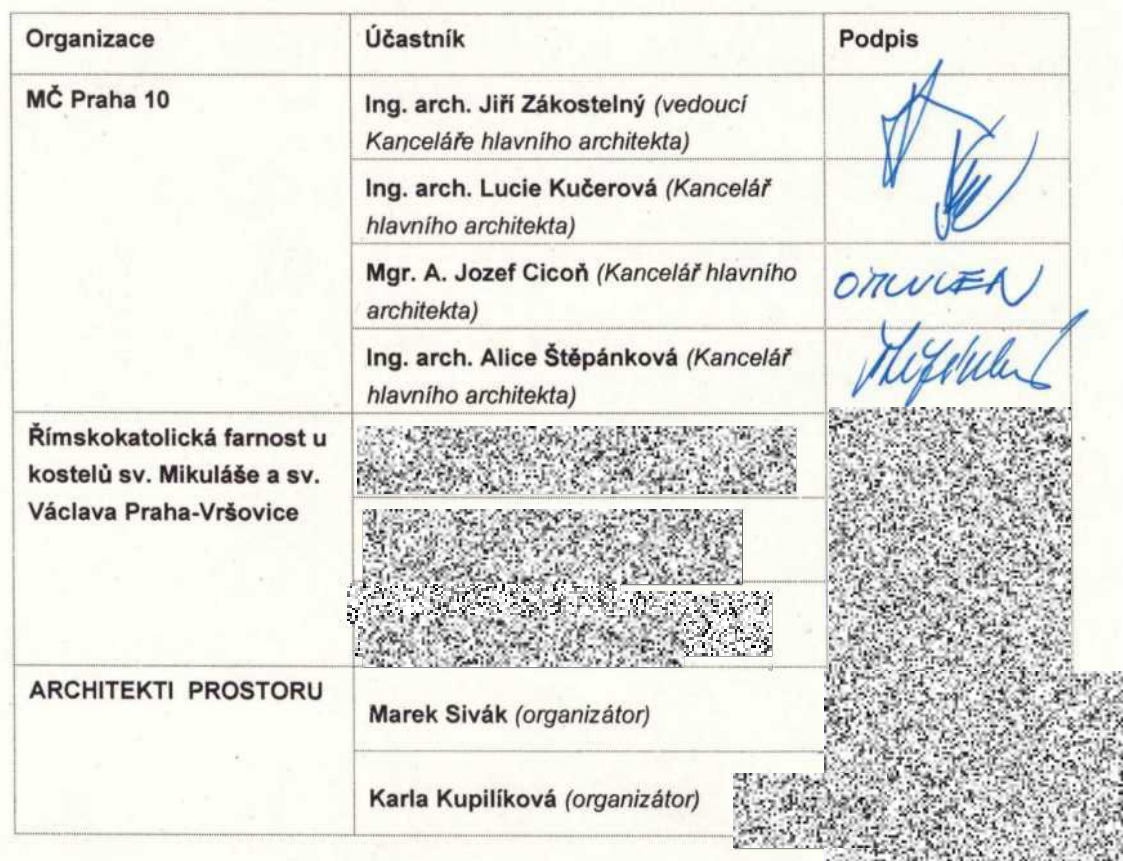 Organizace Účastník Podpis
MČ Praha 10
Ing. arch. Jiří Zákostelný (vedoucí
Kanceláře hlavního architekta)
Ing. arch. Lucie Kučerová (Kancelář
hlavního architekta)
Mgr. A. Jozef Cicoň (Kancelář hlavního
architekta)
OMLUVEN
Ing. arch. Alice Štěpánková (Kancelář
hlavního architekta)
Římskokatolická farnost u
kostelů sv. Mikuláše a sv.
Václava Praha-Vršovice
ARCHITEKTI PROSTORU
Marek Sivák (organizátor)
Karla Kupilíková (organizátor)